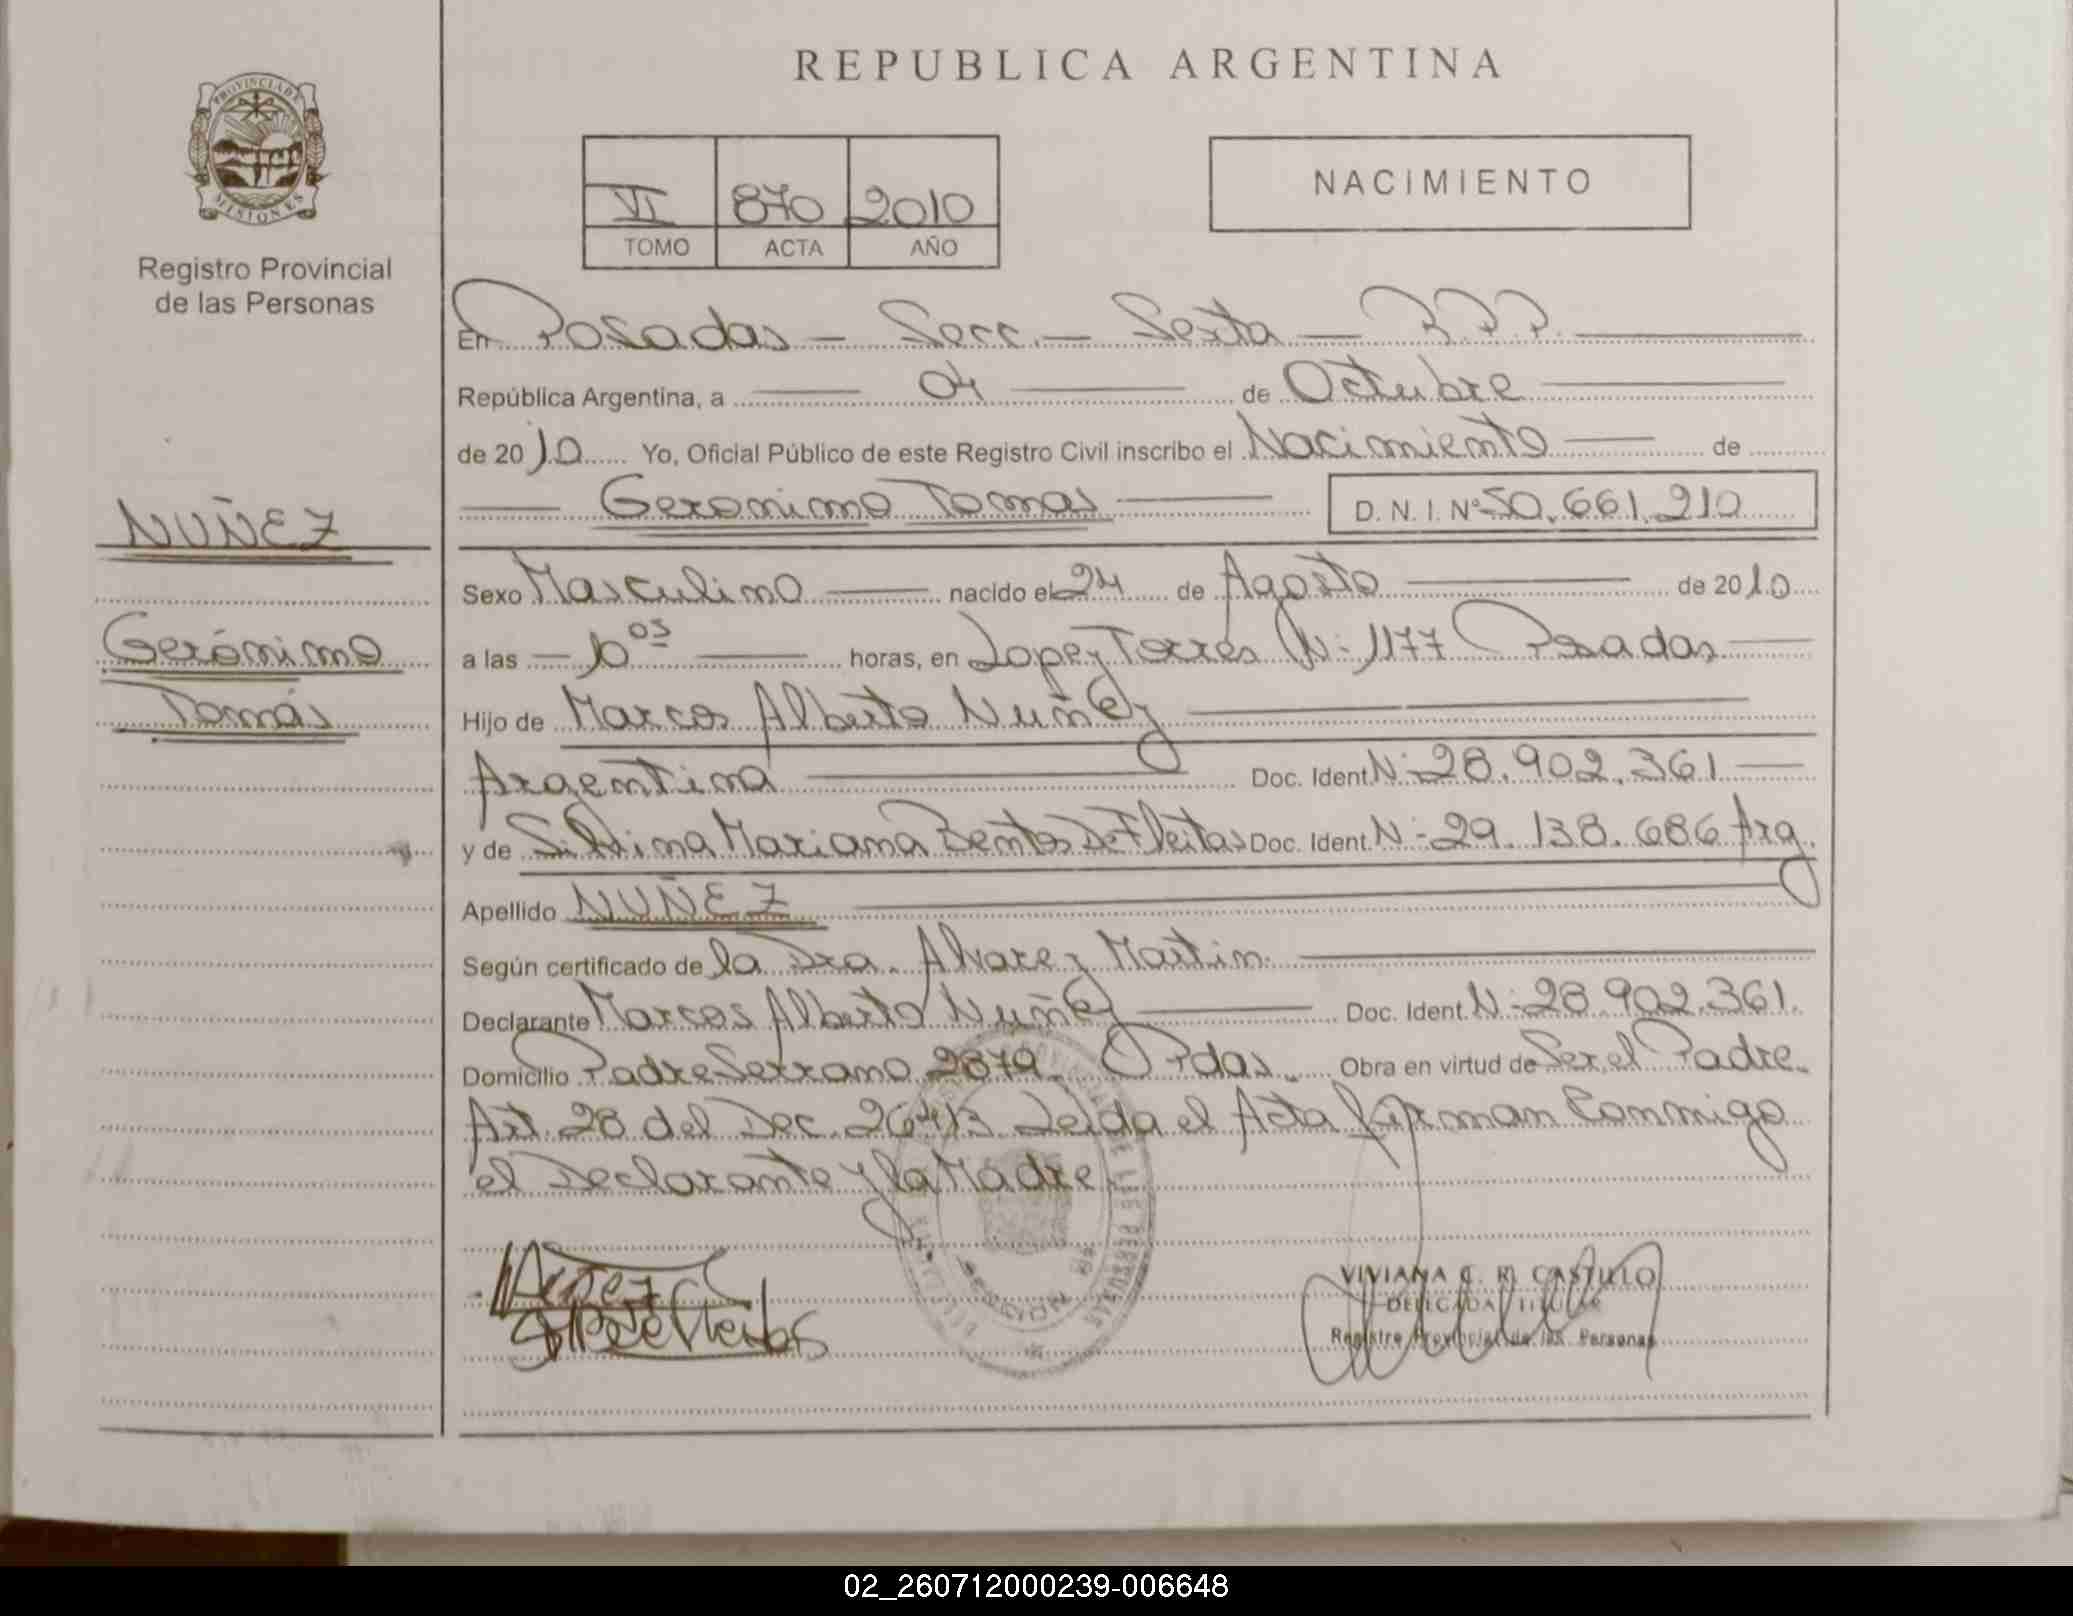 REPUBLICA ARGENTINA
PROVINCIA DE
MISIONES
Registro Provincial
de las Personas
VI 870 2010
TOMO ACTA AÑO
NACIMIENTO
En Posadas — Secc. — Sexta — R.P.P.
República Argentina, a 04 de Octubre
de 2010 Yo, Oficial Público de este Registro Civil inscribo el Nacimiento de
Geronimo Tomas D. N. I. Nº 50.661.210
NUÑEZ
Gerónimo
Tomás
Sexo Masculino nacido el 24 de Agosto de 2010
a las 10 os horas, en Lopez Torres Nº 1177 Posadas
Hijo de Marcos Alberto Nuñez
Argentina Doc. Ident. Nº 28.902.361
y de Silvina Mariana Bentos De Fleitas Doc. Ident. Nº 29.138.686 Arg.
Apellido NUÑEZ
Según certificado de la Dra. Alvarez Martin.
Declarante Marcos Alberto Nuñez Doc. Ident. Nº 28.902.361.
Domicilio Padre Serrano 2879 Pdas. Obra en virtud de Ser el Padre.
Art. 28 del Dec. 26413 Leida el Acta firman Conmigo
el Declarante y la Madre
VIVIANA C. R. CASTILLO
DELEGADA TITULAR
Registro Provincial de las Personas
02_260712000239-006648